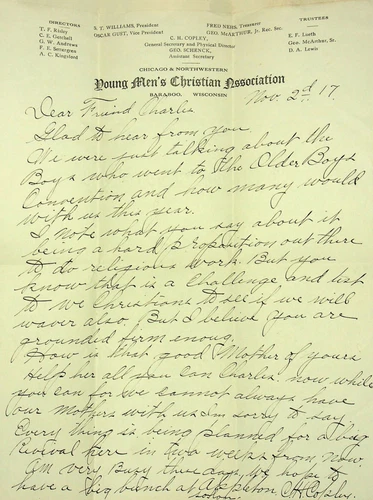 DIRECTORS
T. F. Risley
C. E. Getchell
G. W. Andrews
F. E. Settergren
A. C. Kingsland
S. T. WILLIAMS, President
OSCAR GUST, Vice President
FRED NEHS, Treasurer
GEO. McARTHUR, Jr. Rec. Sec.
C. H. COPLEY,
General Secretary and Physical Director
GEO. SCHENCK,
Assistant Secretary
TRUSTEES
E. F. Looth
Geo. McArthur, Sr.
D. A. Lewis
CHICAGO & NORTHWESTERN
Young Men's Christian Association
BARABOO, WISCONSIN
Nov. 2nd 17
Dear Friend Charlis
Glad to hear from you
We were just talking about the
Boys who went to the Older Boys
Convention and how many would
with us this year.
I note what you say about it
being a hard proposition out there
to do religious work. But you
know that is a challenge and test
to we Christians to see if we will
waver also. But I believe you are
grounded firm enoug.
How is that good Mother of yours
Help her all you can Charlis now, while
you can for we cannot always have
our mothers with us im sorry to say
Every thing is being planned for a big
Revival here in two weeks from now.
Am very Busy these days, We hope to
have a big bunch at Appleton C H Copley.